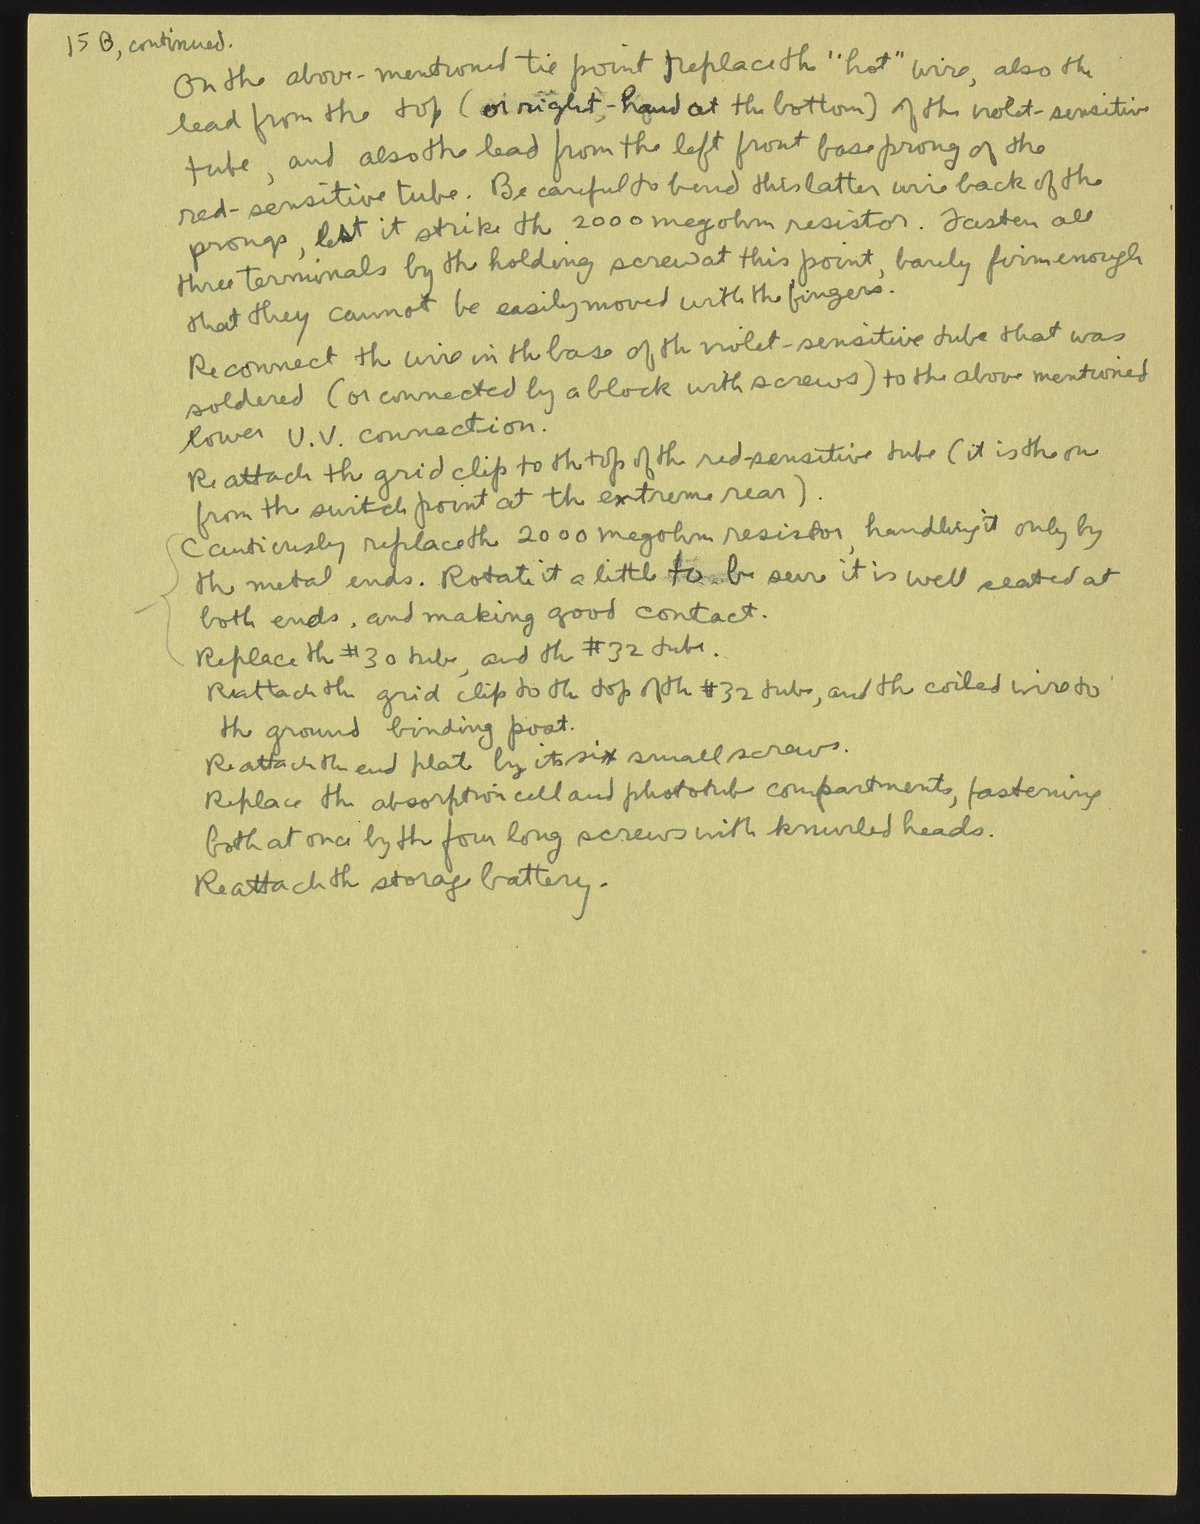 15 B, continued.
On the above-mentioned tie point replace the "hot" wire, also the
lead from the top (or right-hand at the bottom) of the violet-sensitive
tube, and also the lead from the left front base prong of the
red-sensitive tube. Be careful to bend this latter wire back of the
prongs, lest it strike the 2000 megohm resistor. Fasten all
three terminals by the holding screw at this point, barely firm enough
that they cannot be easily moved with the fingers.
Reconnect the wire in the base of the violet-sensitive tube that was
soldered (or connected by a block with screws) to the above mentioned
lower U.V. connection.
Reattach the grid clip to the top of the red-sensitive tube (it is the one
from the switch point at the extreme rear).
Cautiously replace the 2000 megohm resistor, handling it only by
the metal ends. Rotate it a little to be sure it is well seated at
both ends, and making good contact.
Replace the #30 tube, and the #32 tube.
Reattach the grid clip to the top of the #32 tube, and the coiled wire to
the ground binding post.
Reattach the end plate by its six small screws.
Replace the absorption cell and phototube compartments, fastening
both at once by the four long screws with knurled heads.
Reattach the storage battery.